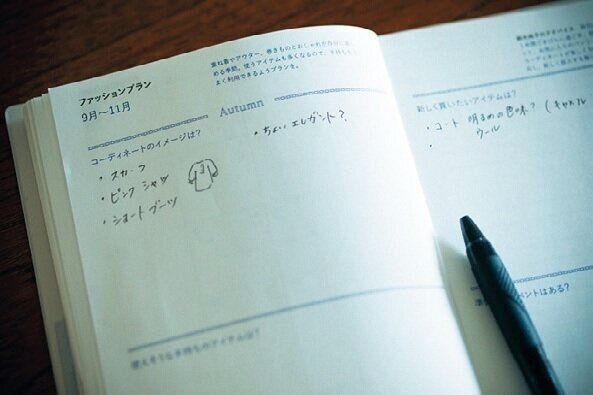 ファッションプラン
9月～11月
重ね着やアウター、巻きものとおしゃれが
める季節。使うアイテムも多くなるので、手持ちも
よく利用できるようプランを。
Autumn
コーディネートのイメージは?
・スカーフ
・ピンク シャツ
・ショートブーツ
・ちょいエレガント?
使えそうな手持ちのアイテムは?
新しく買いたいアイテムは?
・コート 明るめの色味? (キャメル
ウール
・
ベントはある?